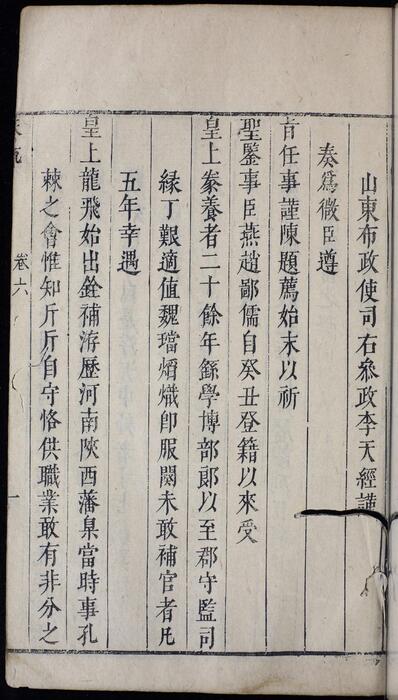 山東布政使司右叅政李天經謹
奏爲微臣遵
旨任事謹陳題薦始末以祈
聖鑒事臣燕趙鄙儒自癸丑登籍以來受
皇上豢養者二十餘年繇學博部郎以至郡守監司
緣丁艱適值魏璫熖熾卽服闋未敢補官者凡
五年幸遇
皇上龍飛始出銓補洊歷河南陝西藩臬當時事孔
棘之會惟知斤斤自守恪供職業敢有非分之
卷六
一